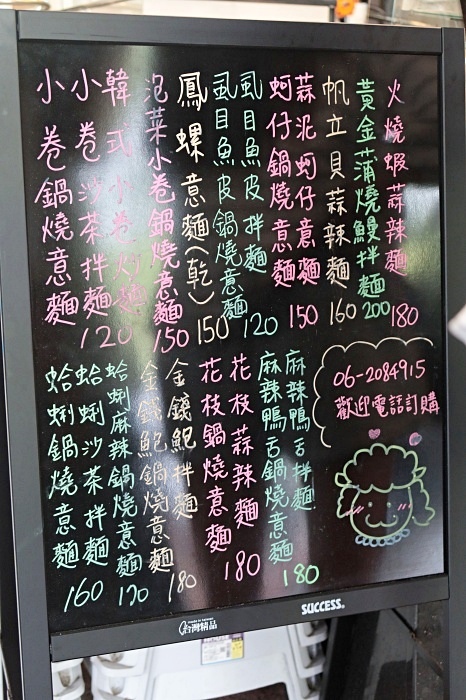 火燒蝦蒜辣麵
180
黃金蒲燒鰻拌麵
200
帆立貝蒜辣麵
160
蒜泥蚵仔意麵
蚵仔鍋燒意麵
150
虱目魚皮拌麵
虱目魚皮鍋燒意麵
120
鳳螺意麵(乾)
150
泡菜小卷鍋燒意麵
150
韓式小卷炒麵
小卷沙茶拌麵
小卷鍋燒意麵
120
06-2084915
歡迎電話訂購
麻辣鴨舌拌麵
麻辣鴨舌鍋燒意麵
180
花枝蒜辣麵
花枝鍋燒意麵
180
金錢鮑拌麵
金錢鮑鍋燒意麵
180
蛤蜊麻辣鍋燒意麵
120
蛤蜊沙茶拌麵
蛤蜊鍋燒意麵
160
台灣精品
SUCCESS